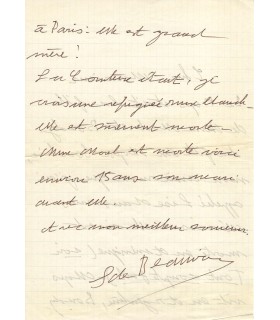 à Paris : elle est grand
mère !
La Comtesse était, je
crois une réfugiée russe blanche
elle est sûrement morte –
Mme Morel est morte voici
environ 15 ans son mari
avant elle.
et avec mon meilleur souvenir.
S de Beauvoir